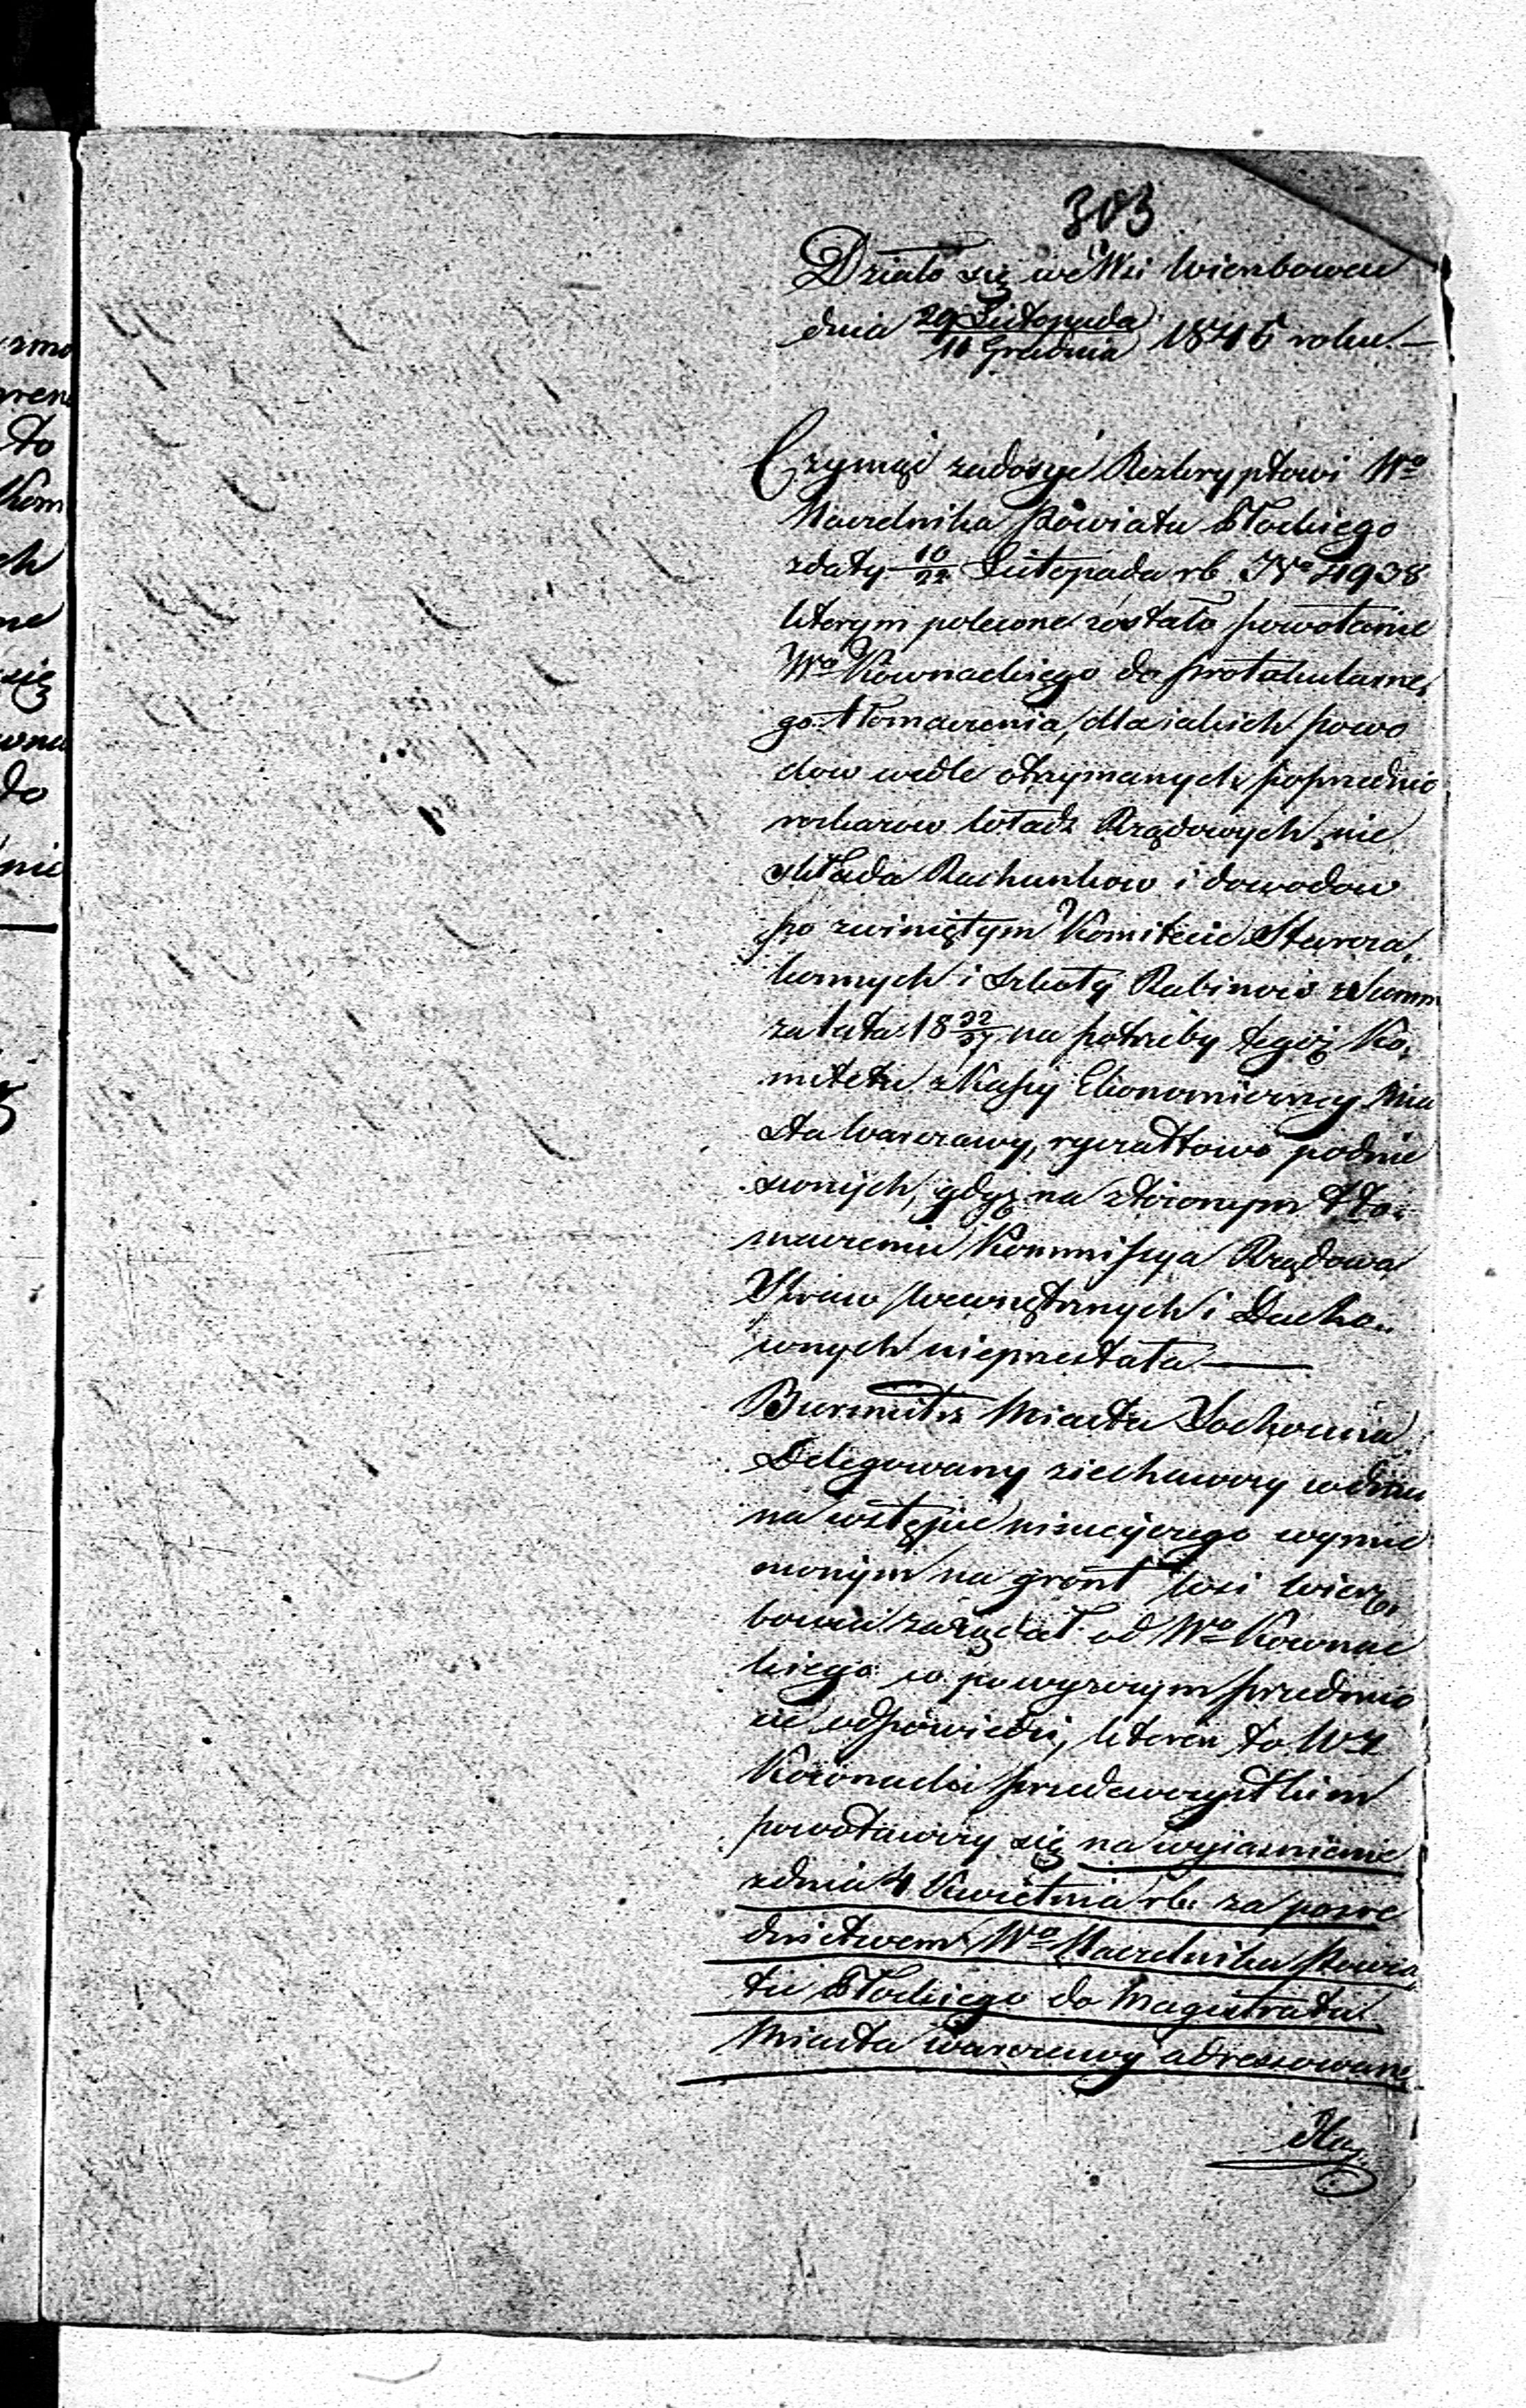 303
Działo się we Wsi Wierzbowcu
dnia 29 Listopada / 11 Grudnia 1845 roku.—
Czyniąc zadosyć Reskryptowi Wo
Naczelnika Powiatu Płockiego
z daty 10/22 Listopada rb No 4938
którym polecone zostało powołanie
Wo Kownackiego do protokularne,
go tłomaczenia, dla iakich powo
dow wedle otrzymanych poprzednio
rozkazow Władz Rządowych, nie
składa Rachunkow i dowodow
po zwiniętym Komitecie Staroza,
konnych i Szkoły Rabinow z Summ
za lata 18 32/37 na potrzeby tegoż Ko,
mitetu z Kassy Ekonomiczney Mia
sta Warszawy, ryczałtowo podnie
sionych, gdyż na złożonym tło,
maczeniu Kommissya Rządowa
Spraw Wewnętrznych i Ducho,,
wnych nieprzestała —
Burmistrz Miasta Sochocina
Delegowany ziechawszy w dniu
na wstępie ninieyszego wymie
nionym na grónt Wsi Wierz,
bowca zażądał od Wo Kownac
kiego w powyższym przedmio
cie odpowiedzi, któren to WJ
Kownacki przedewszystkiem
powoławszy się na wyiasnienie
z dnia 4 Kwietnia rb. za posre
dnictwem Wo Naczelnika Powia,
tu Płockiego do Magistratu
Miasta Warszawy adressowane
zmo
to
Kom
ch
ne
się
wna
do
nie